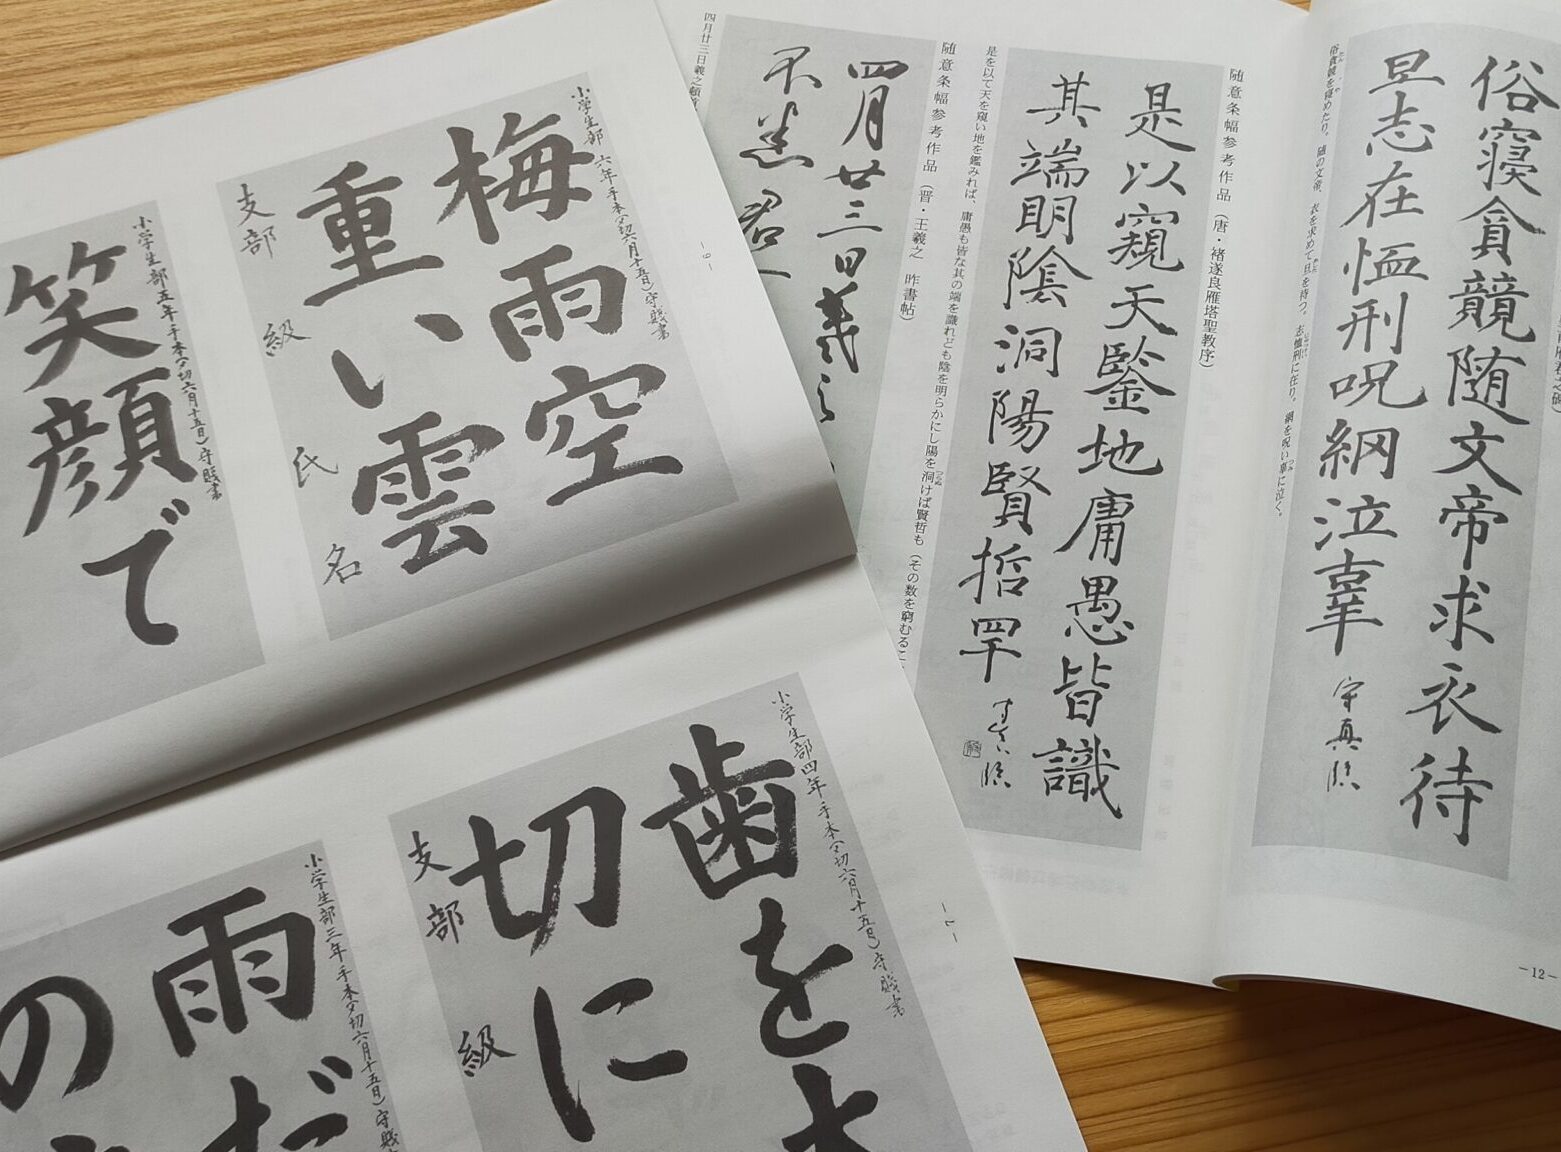 小学生部 六年手本(〆切六月十五日)守賤書
梅雨空
重い雲
支部 級 氏名
-6-
小学生部五年手本(〆切六月十五日)守賤書
笑顔で
小学生部四年手本(〆切六月十五日)守賤書
歯を大
切に
支部 級
-7-
小学生部三年手本(〆切六月十五日)守賤書
雨だ
の
俗寝貪競随文帝求衣待
旦志在恤刑呪綱泣辜
俗貪競を寝めたり。随の文帝、衣を求めて旦を待つ。志恤刑に在り。綱を呪い辜に泣く。
-12-
随意条幅参考作品(唐・褚遂良雁塔聖教序)
是以窺天鑒地庸愚皆識
其端明陰洞陽賢哲罕
是を以て天を窺い地を鑑みれば、庸愚も皆な其の端を識れども陰を明らかにし陽を洞けば賢哲も(その数を窮むるこ
随意条幅参考作品(晋・王羲之 昨書帖)
四月廿三日羲之
四月廿三日羲之頓首